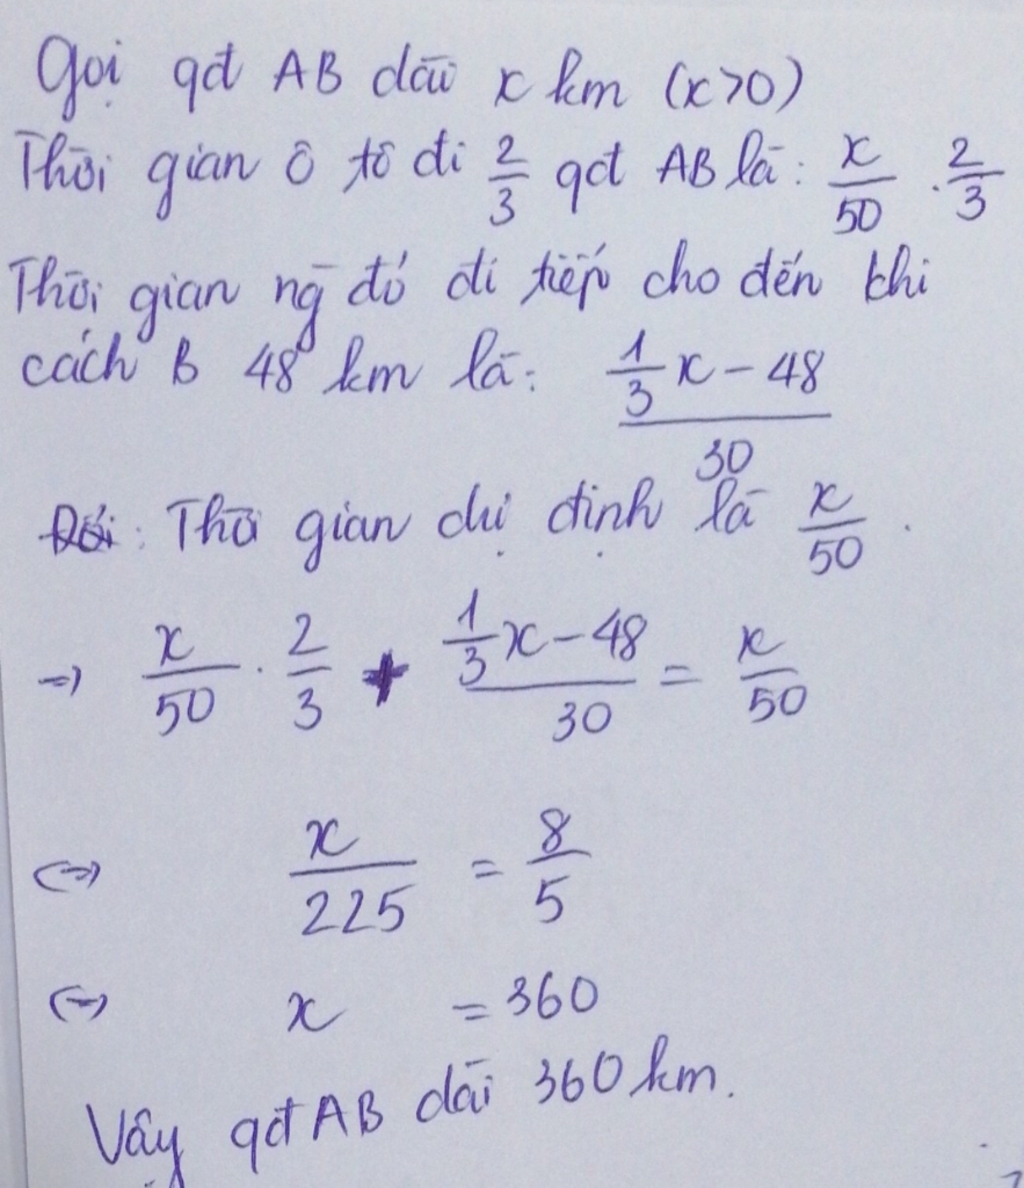 Gọi qđ AB dài x km (x>0)
Thời gian ô tô đi 2/3 qđ AB là: x/50 . 2/3
Thời gian ng đó đi tiếp cho đến khi
cách B 48 km là: (1/3 x - 48)/30
Thời gian dự định là x/50 .
=> x/50 . 2/3 + (1/3 x - 48)/30 = x/50
<=> x/225 = 8/5
<=> x = 360
Vậy qđ AB dài 360 km.